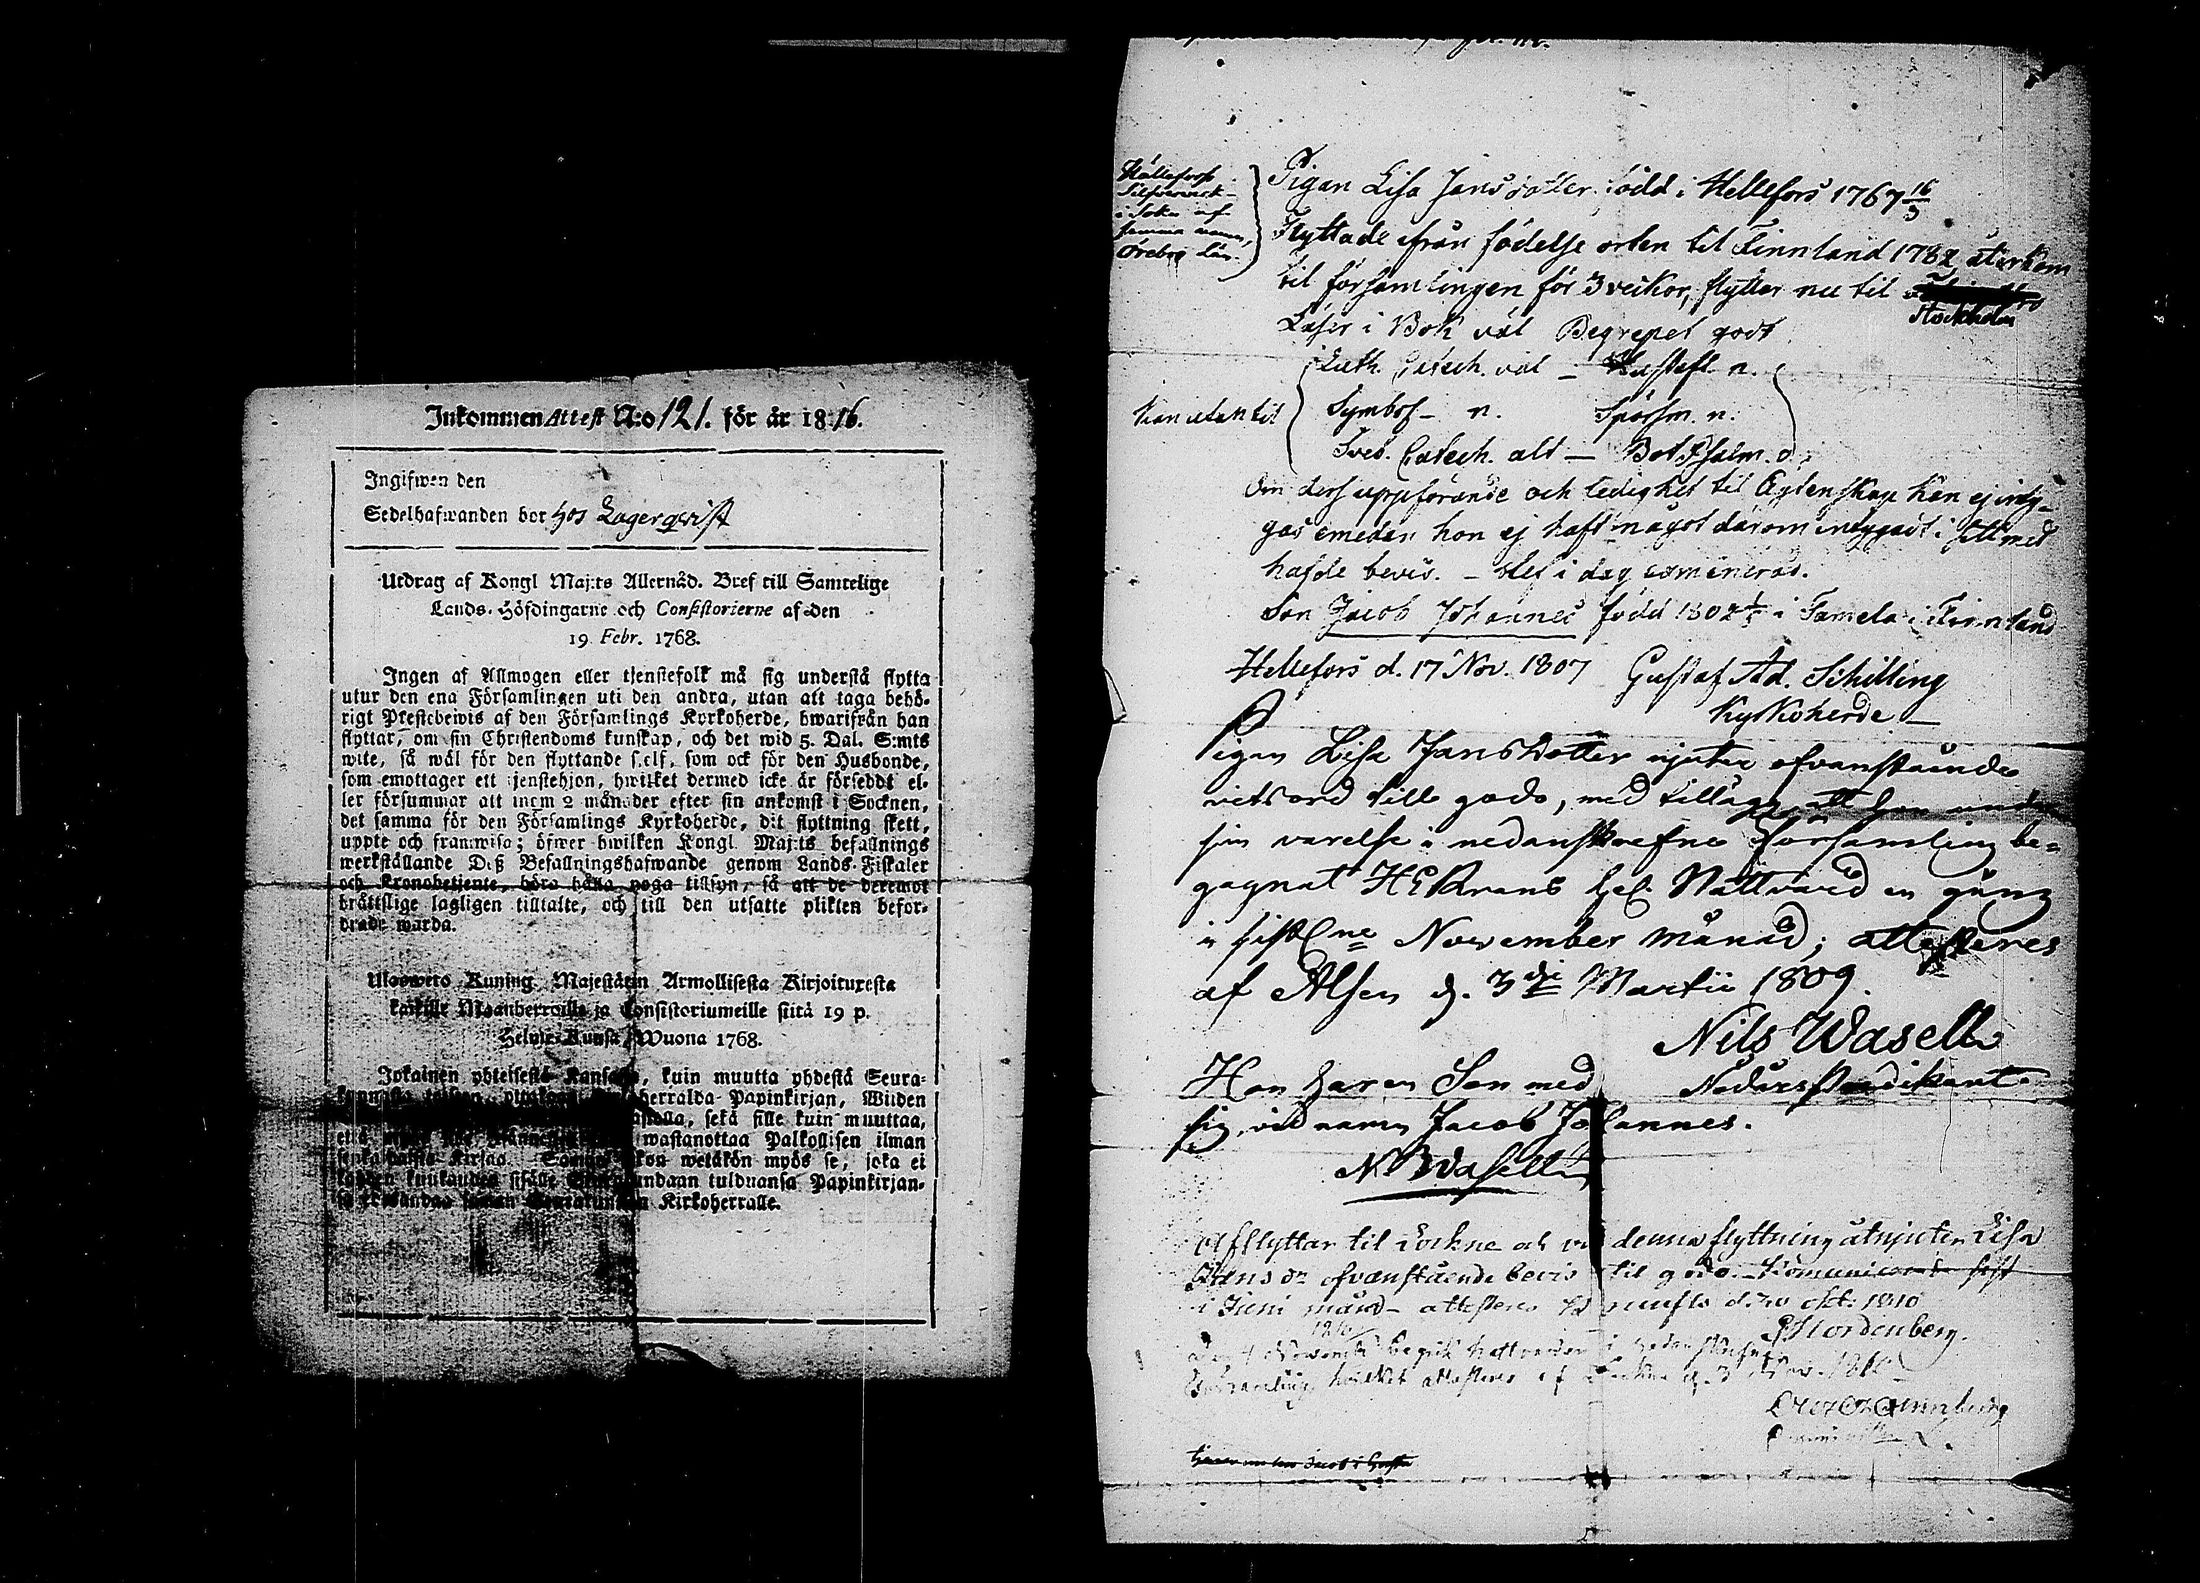 Inkommen Attest N:o 121. för år 1816.
Ingifwen den
Sedelhafwanden bor hos Lagerqvist
Utdrag af Kongl Maj:ts Allernåd. Bref till Samtelige
Lands-Höfdingarne och Consistorierne af den
19 Febr. 1768.
Ingen af Allmogen eller tjenstefolk må sig understå flytta
utur den ena Församlingen uti den andra, utan att taga behö-
rigt Prestebewis af den Församlings Kyrkoherde, hwarifrån han
flyttar, om sin Christendoms kunskap, och det wid 5. Dal. S:mts
wite, så wäl för den flyttande self, som ock för den Husbonde,
som emottager ett tjenstehjon, hwilket dermed icke är försedt el-
ler försummar att inom 2 månader efter sin ankomst i Socknen,
det samma för den Församlings Kyrkoherde, dit flyttning skett,
uppte och framwisa; öfwer hwilken Kongl. Maj:ts befallnings
werkställande Deß Befallningshafwande genom Lands-Fiskaler
och Kronobetjente, böra hålla noga tillsyn, så att de deremot
brättslige lagligen tilltalte, och till den utsatte plikten befor-
drade warda.
Ulosweto Kuning. Majestätin Armollisesta Kirjoituxesta
kaikille Maanherroille ja Consistoriumeille siitä 19 p.
Helme-Kuusa Wuona 1768.
Jokainen yhteisestä Kansasta, kuin muutta yhdestä Seura-
herralda Papinkirjan, Wiiden
sekä sille kuin muuttaa,
wastanottaa Palkollisen ilman
Kirjaa. wetäkön myös se, joka ei
kuukauden sisälle tulduansa Papinkirjan-
Kirkoherralle.
Hällefors
Silfververck
i Sokn af
samma namn,
Örebro Län.
Pigan Lisa Jansdotter född i Hellefors 1767 16/3
Flyttade ifrån födelse orten til Finnland 1782 återkom
til församlingen för 3 veckor, flytter nu til
Stockholm
Läser i Bok väl Begrepet godt
Kan utantil
Luth. Catech. väl – Hustafl. n.
Symbol – n. Spörsm. n.
Sveb. Catech. alt – Bot Psalm. d:o
Om dess uppförande och ledighet til Ägtenskap kan ej inty-
gas emedan hon ej haft något därom intygadt i sitt med
hafde bevis. – blef i dag examinerad.
Son Jacob Johannes född 1802 i Tamela i Finnland
Hellefors d. 17 Nov. 1807 Gustaf Ad. Schilling
Kyrkoherde –
Pigan Lisa Jansdotter njuter ofvanstående
vitsord till godo, med tillägg, att hon under
sin varelse i nedanskrefne Församling be-
gagnat HERrans hel. Nattvard en gång
i sistl:ne November månad; attesteres
af Alsen d. 3die Martii 1809.
Nils Wasell
Nådårs Predikant
Hon har en Son med
sig, vid namn Jacob Johannes.
N. Wasell
Afflyttar til Lockne och vid denna flyttning åtnjuter Lisa
Jans dr ofvanstående bevis til godo. – Communicerade sist
i Junii månad – attesteres d. 20 okt. 1810
P Nordenberg.
1810
November begick nattvarden i nedanskrefne
Församling, hvilket attesteres af Lockne d. 3 Nov. 1810